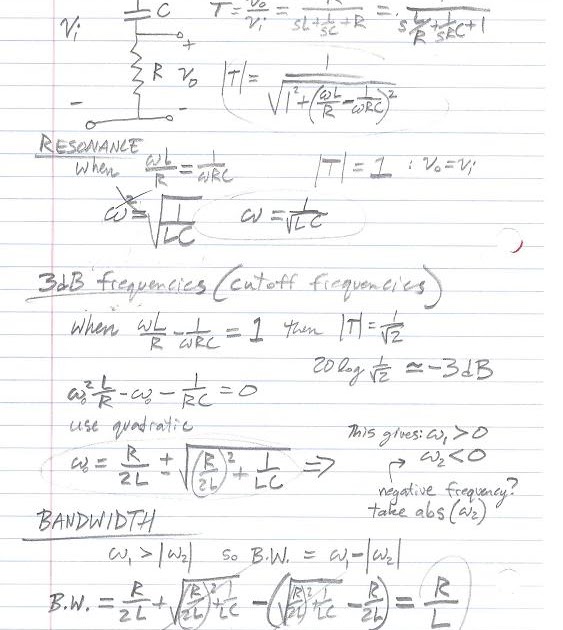 C
T = Vo/Vi = R/(sL + 1/sC + R) = 1/(s L/R + 1/sRC + 1)
Vi
+
R Vo
|T| = 1/√(1² + (ωL/R - 1/ωRC)²)
- -
RESONANCE
when ωL/R = 1/ωRC |T| = 1 : Vo = Vi
ω² = √(1/LC) ω = 1/√LC
3dB frequencies (cutoff frequencies)
when ωL/R - 1/ωRC = 1 then |T| = 1/√2
20 log 1/√2 ≈ -3dB
ω₀² L/R - ω₀ - 1/RC = 0
use quadratic
This gives: ω₁ > 0
ω₂ < 0
ω₀ = R/2L ± √((R/2L)² + 1/LC) ⇒
negative frequency?
take abs(ω₂)
BANDWIDTH
ω₁ > |ω₂| so B.W. = ω₁ - |ω₂|
B.W. = R/2L + √((R/2L)² + 1/LC) - (√((R/2L)² + 1/LC) - R/2L) = R/L